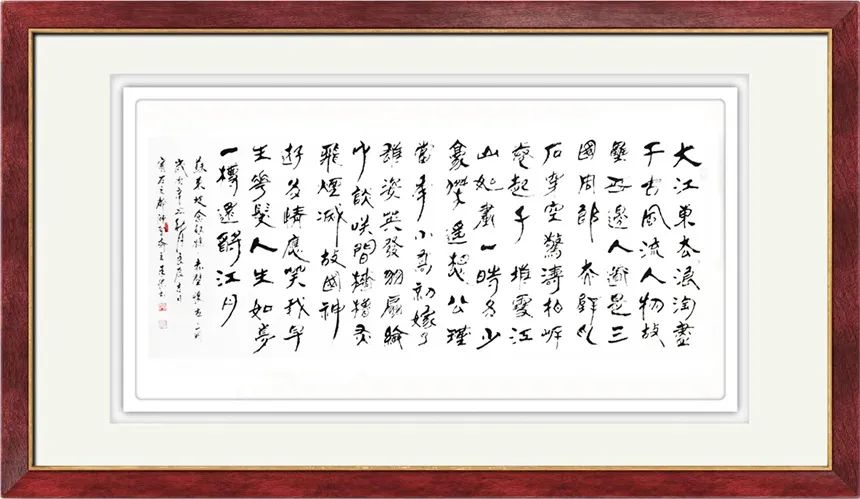 大江東去浪淘盡
千古風流人物故
壘西邊人道是三
國周郎赤壁亂
石穿空驚濤拍岸
卷起千堆雪江
山如畫一時多少
豪傑遙想公瑾
當年小喬初嫁了
雄姿英發羽扇綸
巾談笑間檣櫓灰
飛煙滅故國神
遊多情應笑我早
生華髮人生如夢
一樽還酹江月
蘇東坡念奴嬌 赤壁懷古